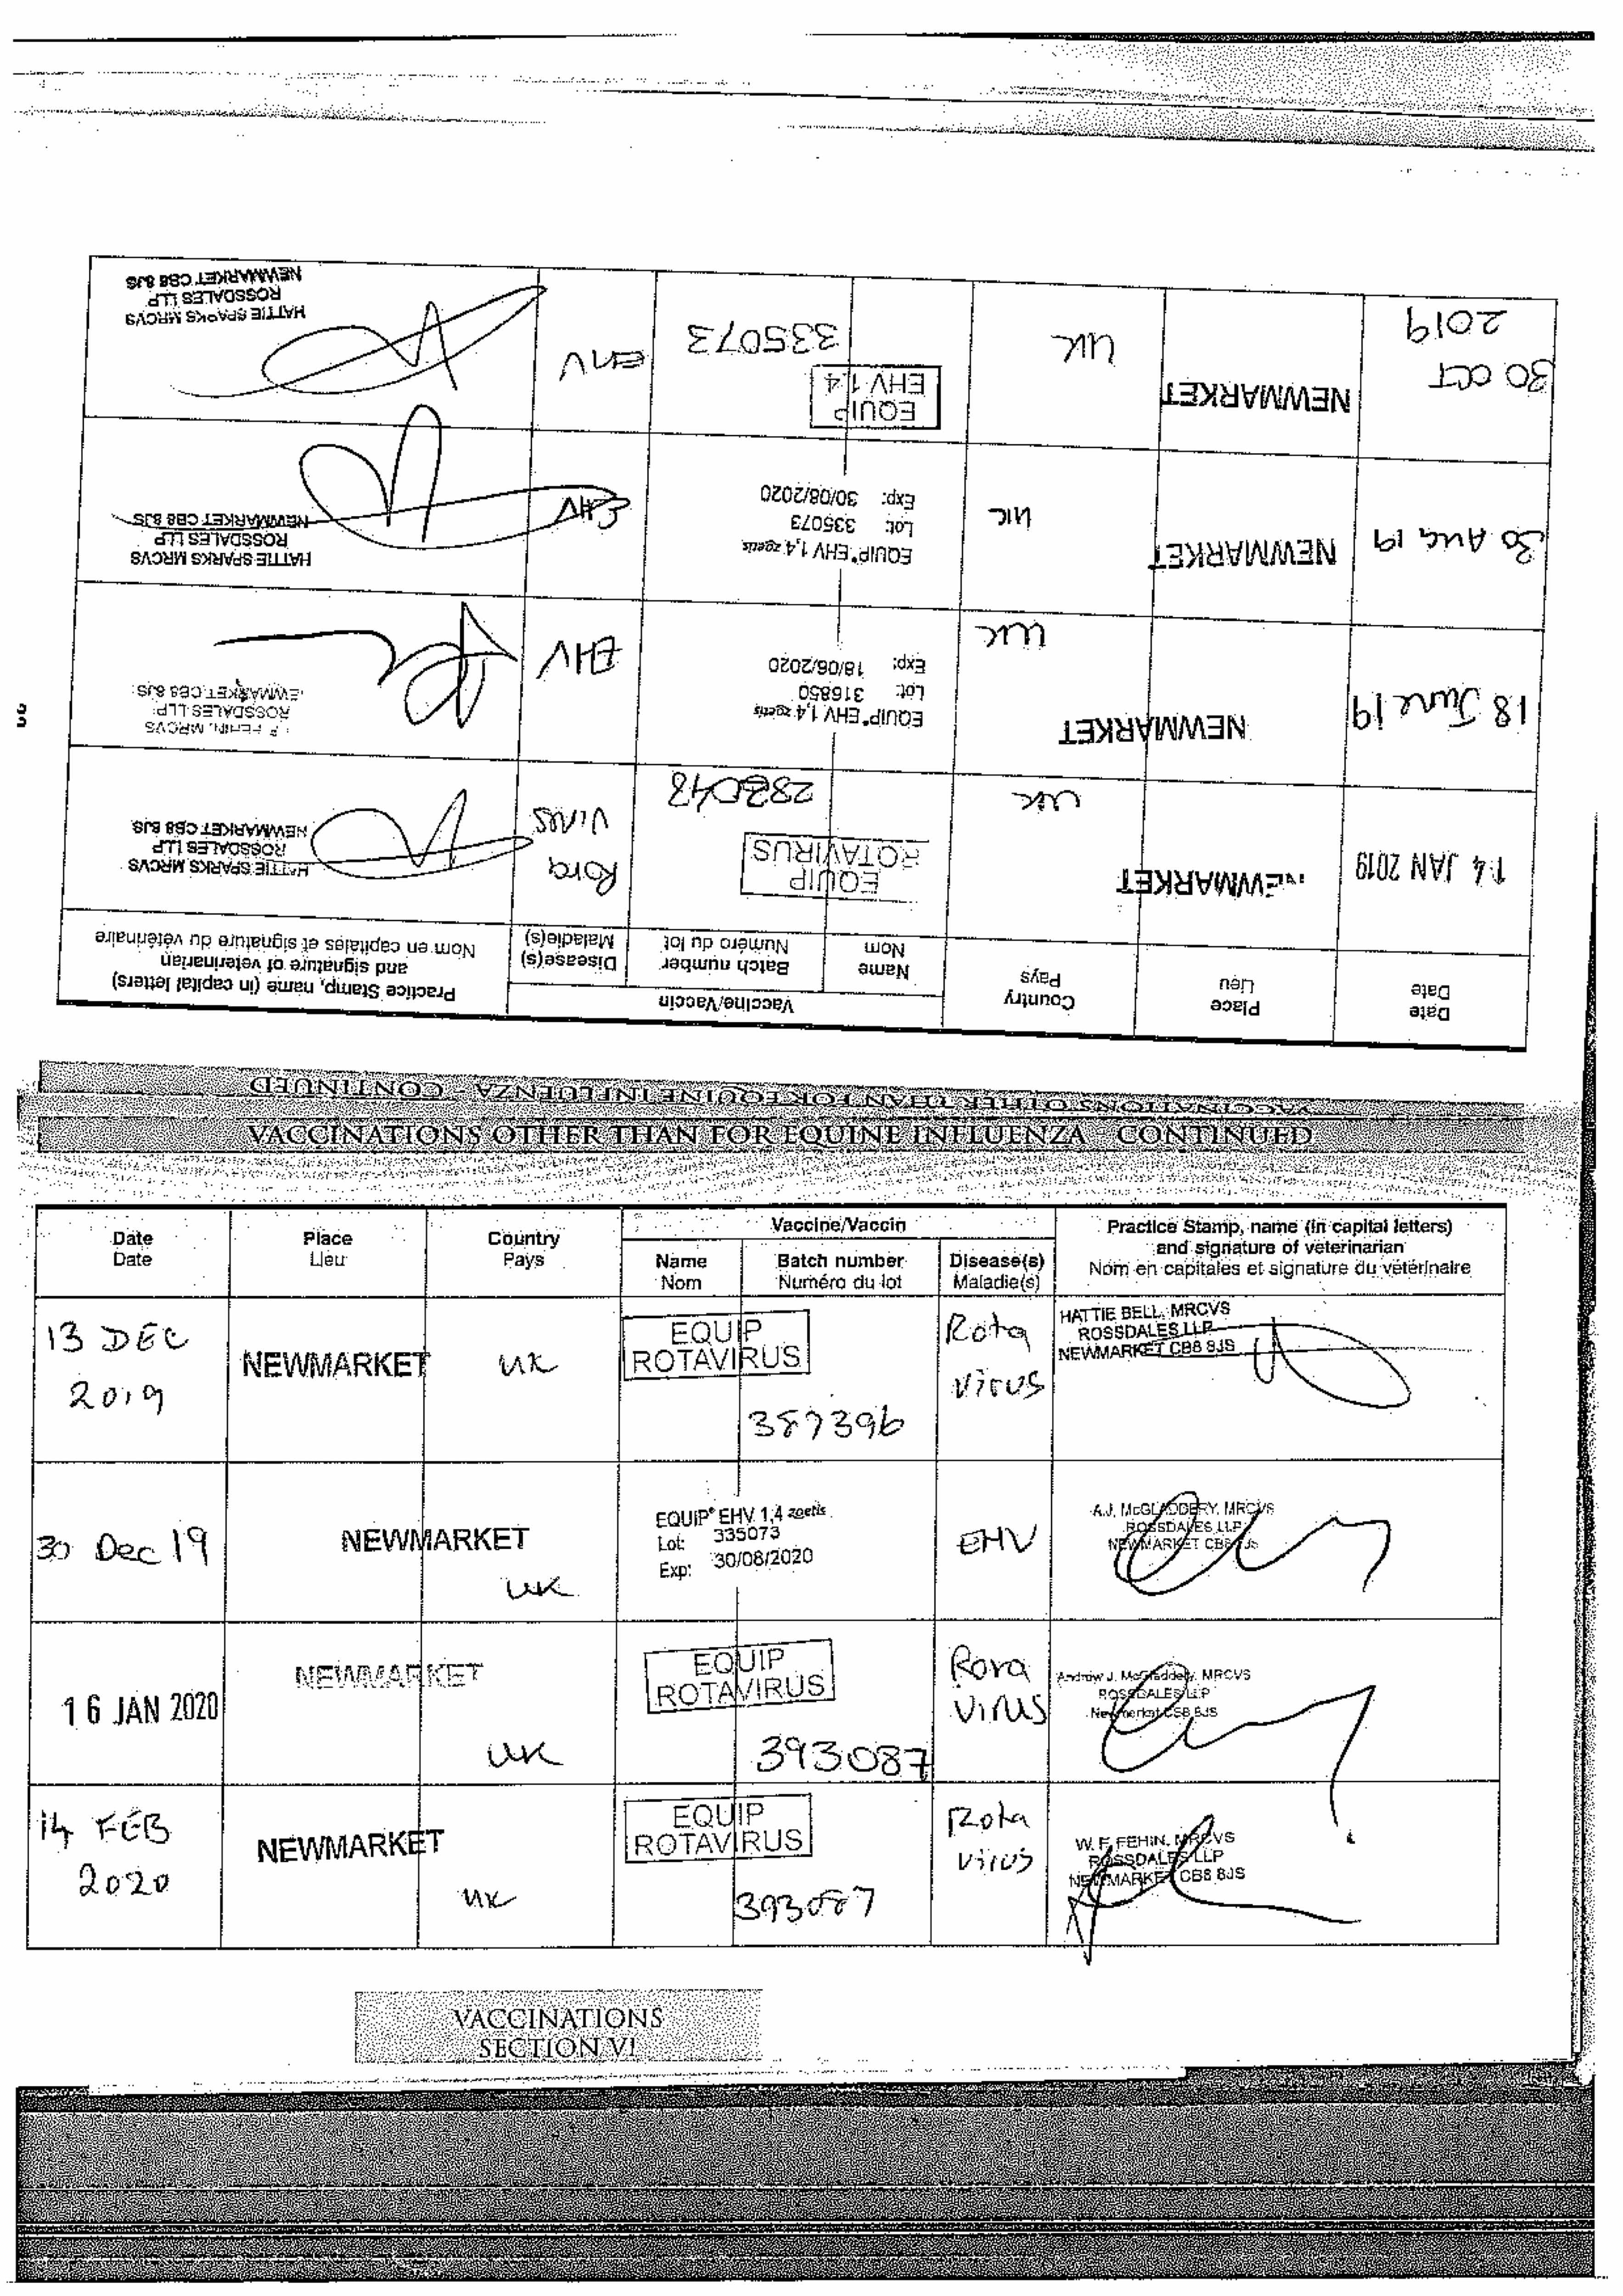 VACCINATIONS OTHER THAN FOR EQUINE INFLUENZA - CONTINUED
Date
Date
Place
Lieu
Country
Pays
Vaccine/Vaccin
Name
Nom
Batch number
Numéro du lot
Disease(s)
Maladie(s)
Practice Stamp, name (in capital letters)
and signature of veterinarian
Nom en capitales et signature du vétérinaire
14 JAN 2019
NEWMARKET
UK
EQUIP
ROTAVIRUS
Rota
Virus
HATTIE SPARKS MRCVS
ROSSDALES LLP
NEWMARKET CB8 8JS
18 June 19
NEWMARKET
UK
EQUIP® EHV 1,4 zoetis
Lot: 316850
Exp: 18/06/2020
EHV
FEHIN, MRCVS
ROSSDALES LLP
NEWMARKET CB8 8JS
30 AUG 19
NEWMARKET
UK
EQUIP® EHV 1,4 zoetis
Lot: 335073
Exp: 30/08/2020
EHV
HATTIE SPARKS MRCVS
ROSSDALES LLP
NEWMARKET CB8 8JS
30 OCT
2019
NEWMARKET
UK
EQUIP
EHV 1,4
335073
EHV
HATTIE SPARKS MRCVS
ROSSDALES LLP
NEWMARKET CB8 8JS
33
VACCINATIONS OTHER THAN FOR EQUINE INFLUENZA - CONTINUED
Date
Date
Place
Lieu
Country
Pays
Vaccine/Vaccin
Name
Nom
Batch number
Numéro du lot
Disease(s)
Maladie(s)
Practice Stamp, name (in capital letters)
and signature of veterinarian
Nom en capitales et signature du vétérinaire
13 DEC
2019
NEWMARKET
UK
EQUIP
ROTAVIRUS
387396
Rota
virus
HATTIE BELL, MRCVS
ROSSDALES LLP
NEWMARKET CB8 8JS
30 Dec 19
NEWMARKET
UK
EQUIP® EHV 1,4 zoetis
Lot: 335073
Exp: 30/08/2020
EHV
A.J. McGLADDERY, MRCVS
ROSSDALES LLP
NEWMARKET CB8 8JS
16 JAN 2020
NEWMARKET
UK
EQUIP
ROTAVIRUS
393087
Rota
Virus
Andrew J. McGladdery, MRCVS
ROSSDALES LLP
Newmarket CB8 8JS
14 FEB
2020
NEWMARKET
UK
EQUIP
ROTAVIRUS
393087
Rota
virus
W. F. FEHIN, MRCVS
ROSSDALES LLP
NEWMARKET CB8 8JS
VACCINATIONS
SECTION VI